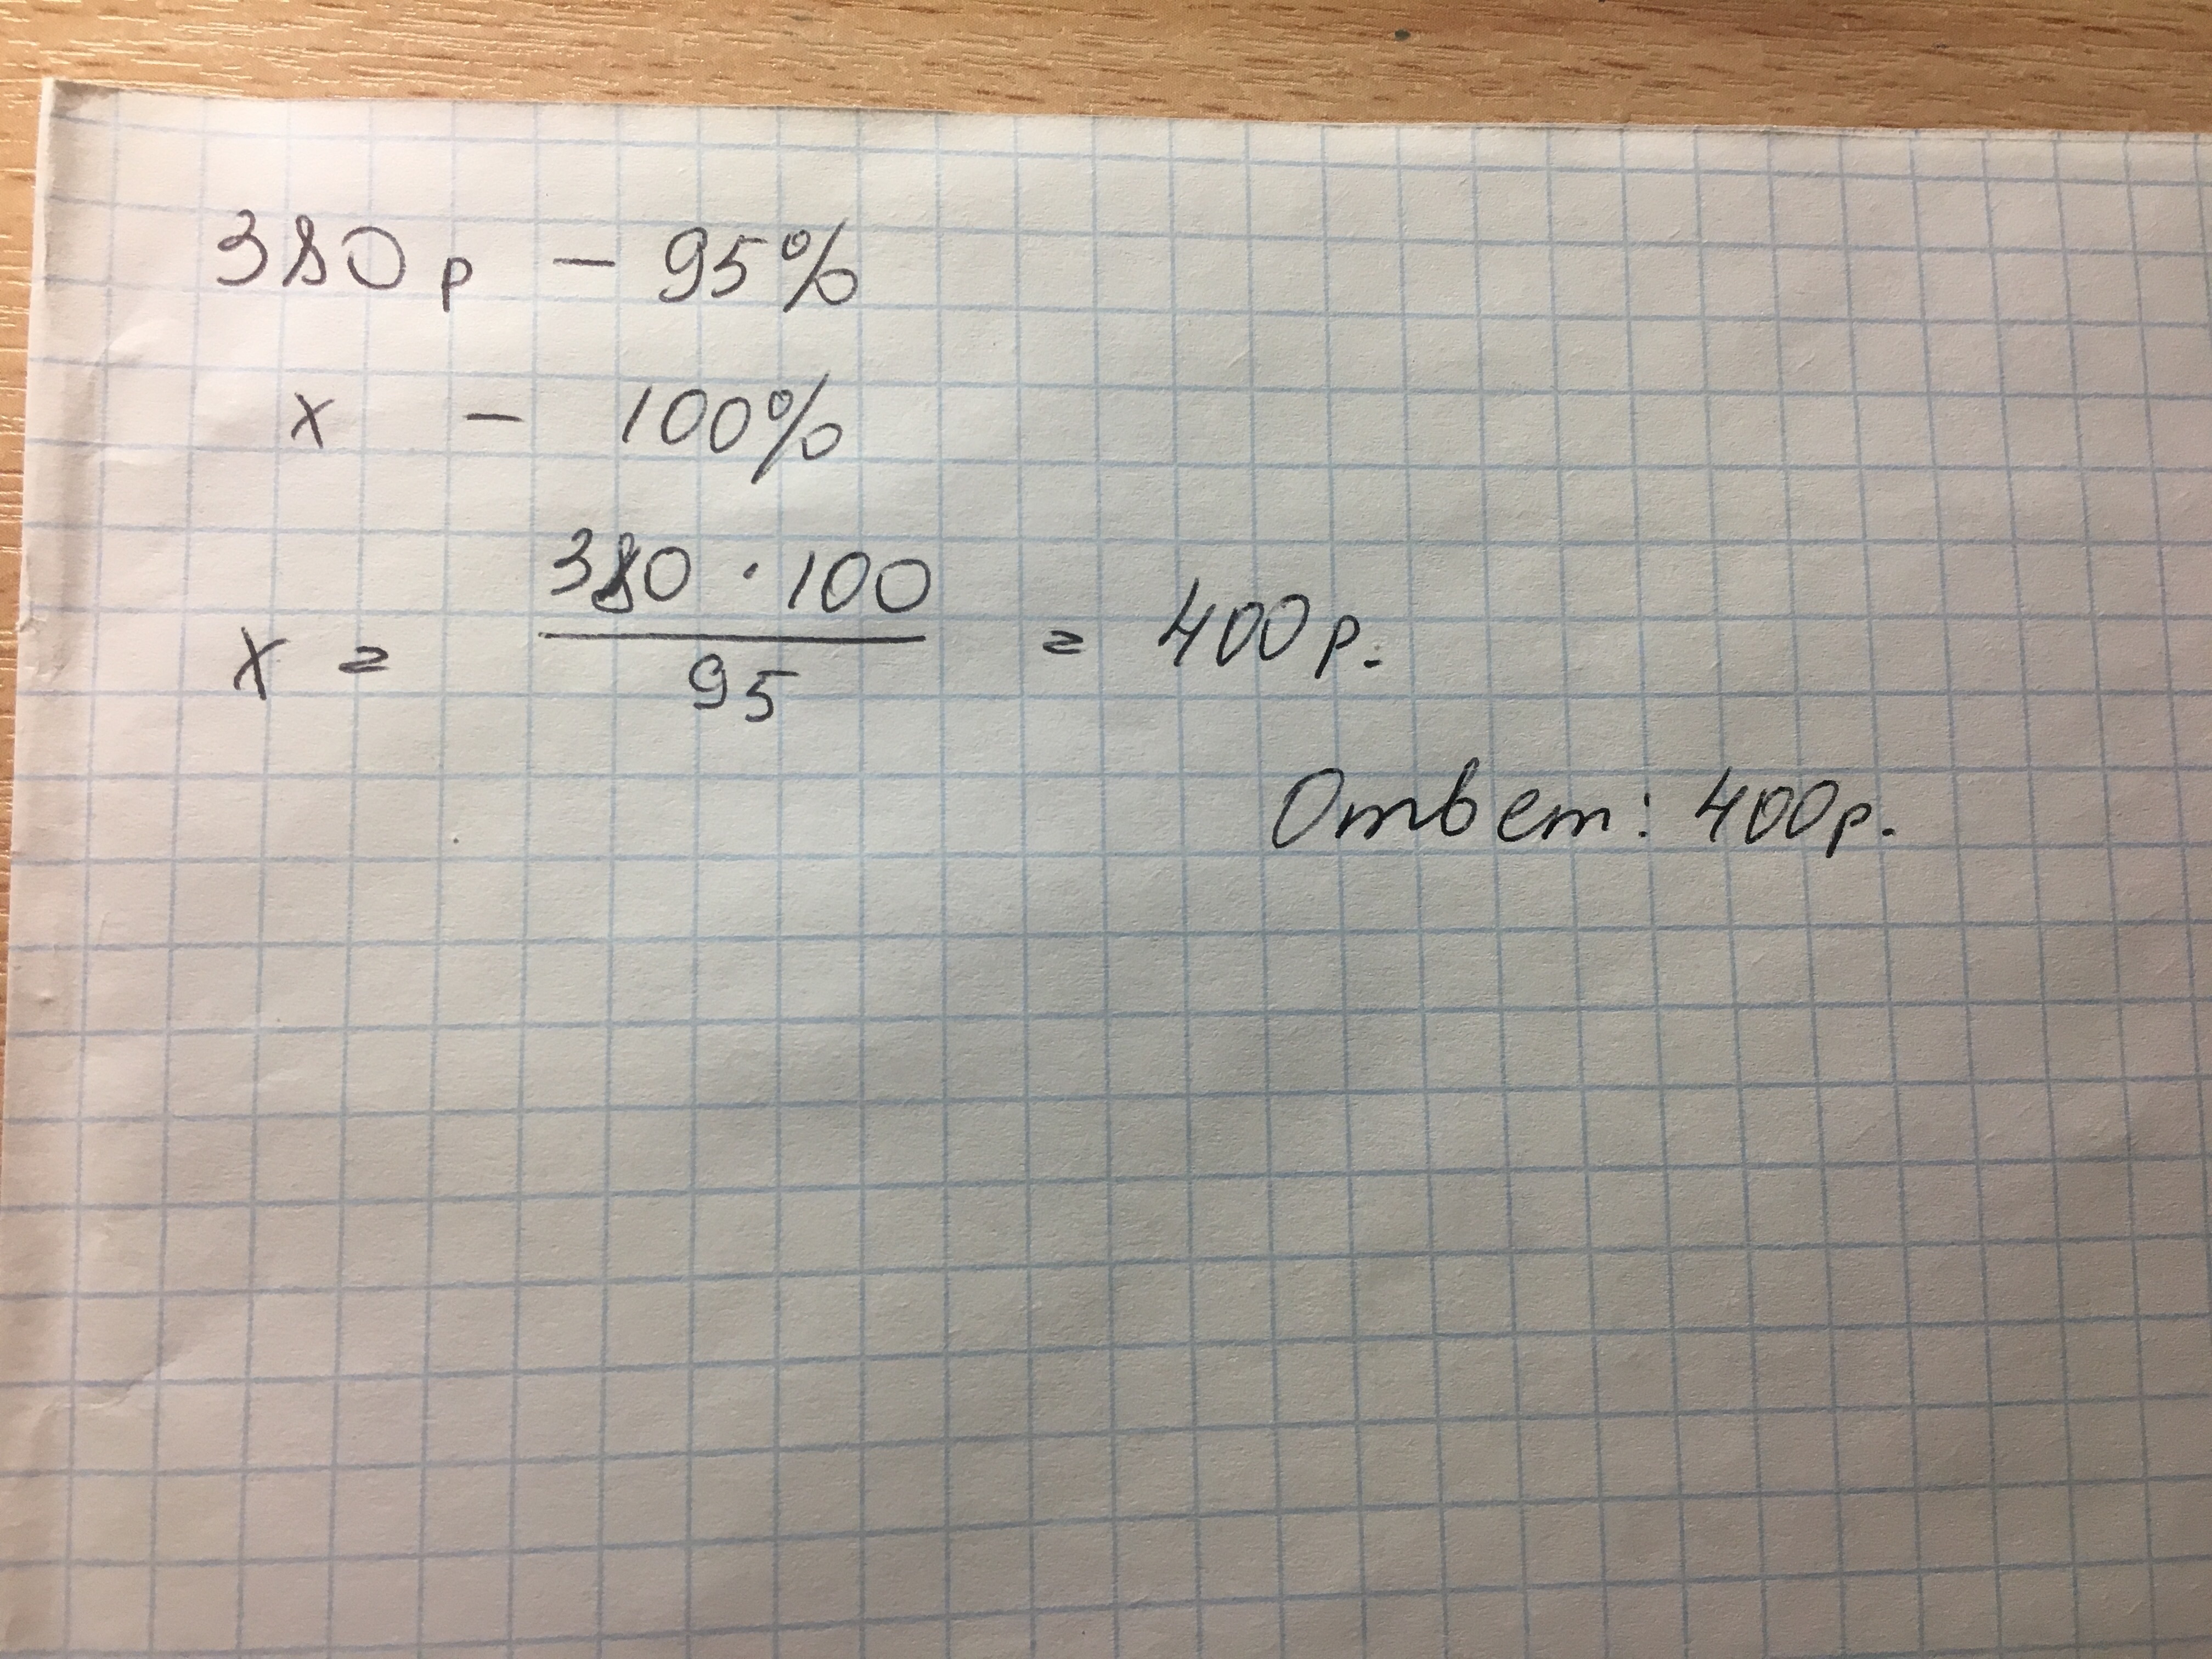 380р – 95%
х – 100%
х = 380 · 100 / 95 = 400р.
Ответ: 400р.